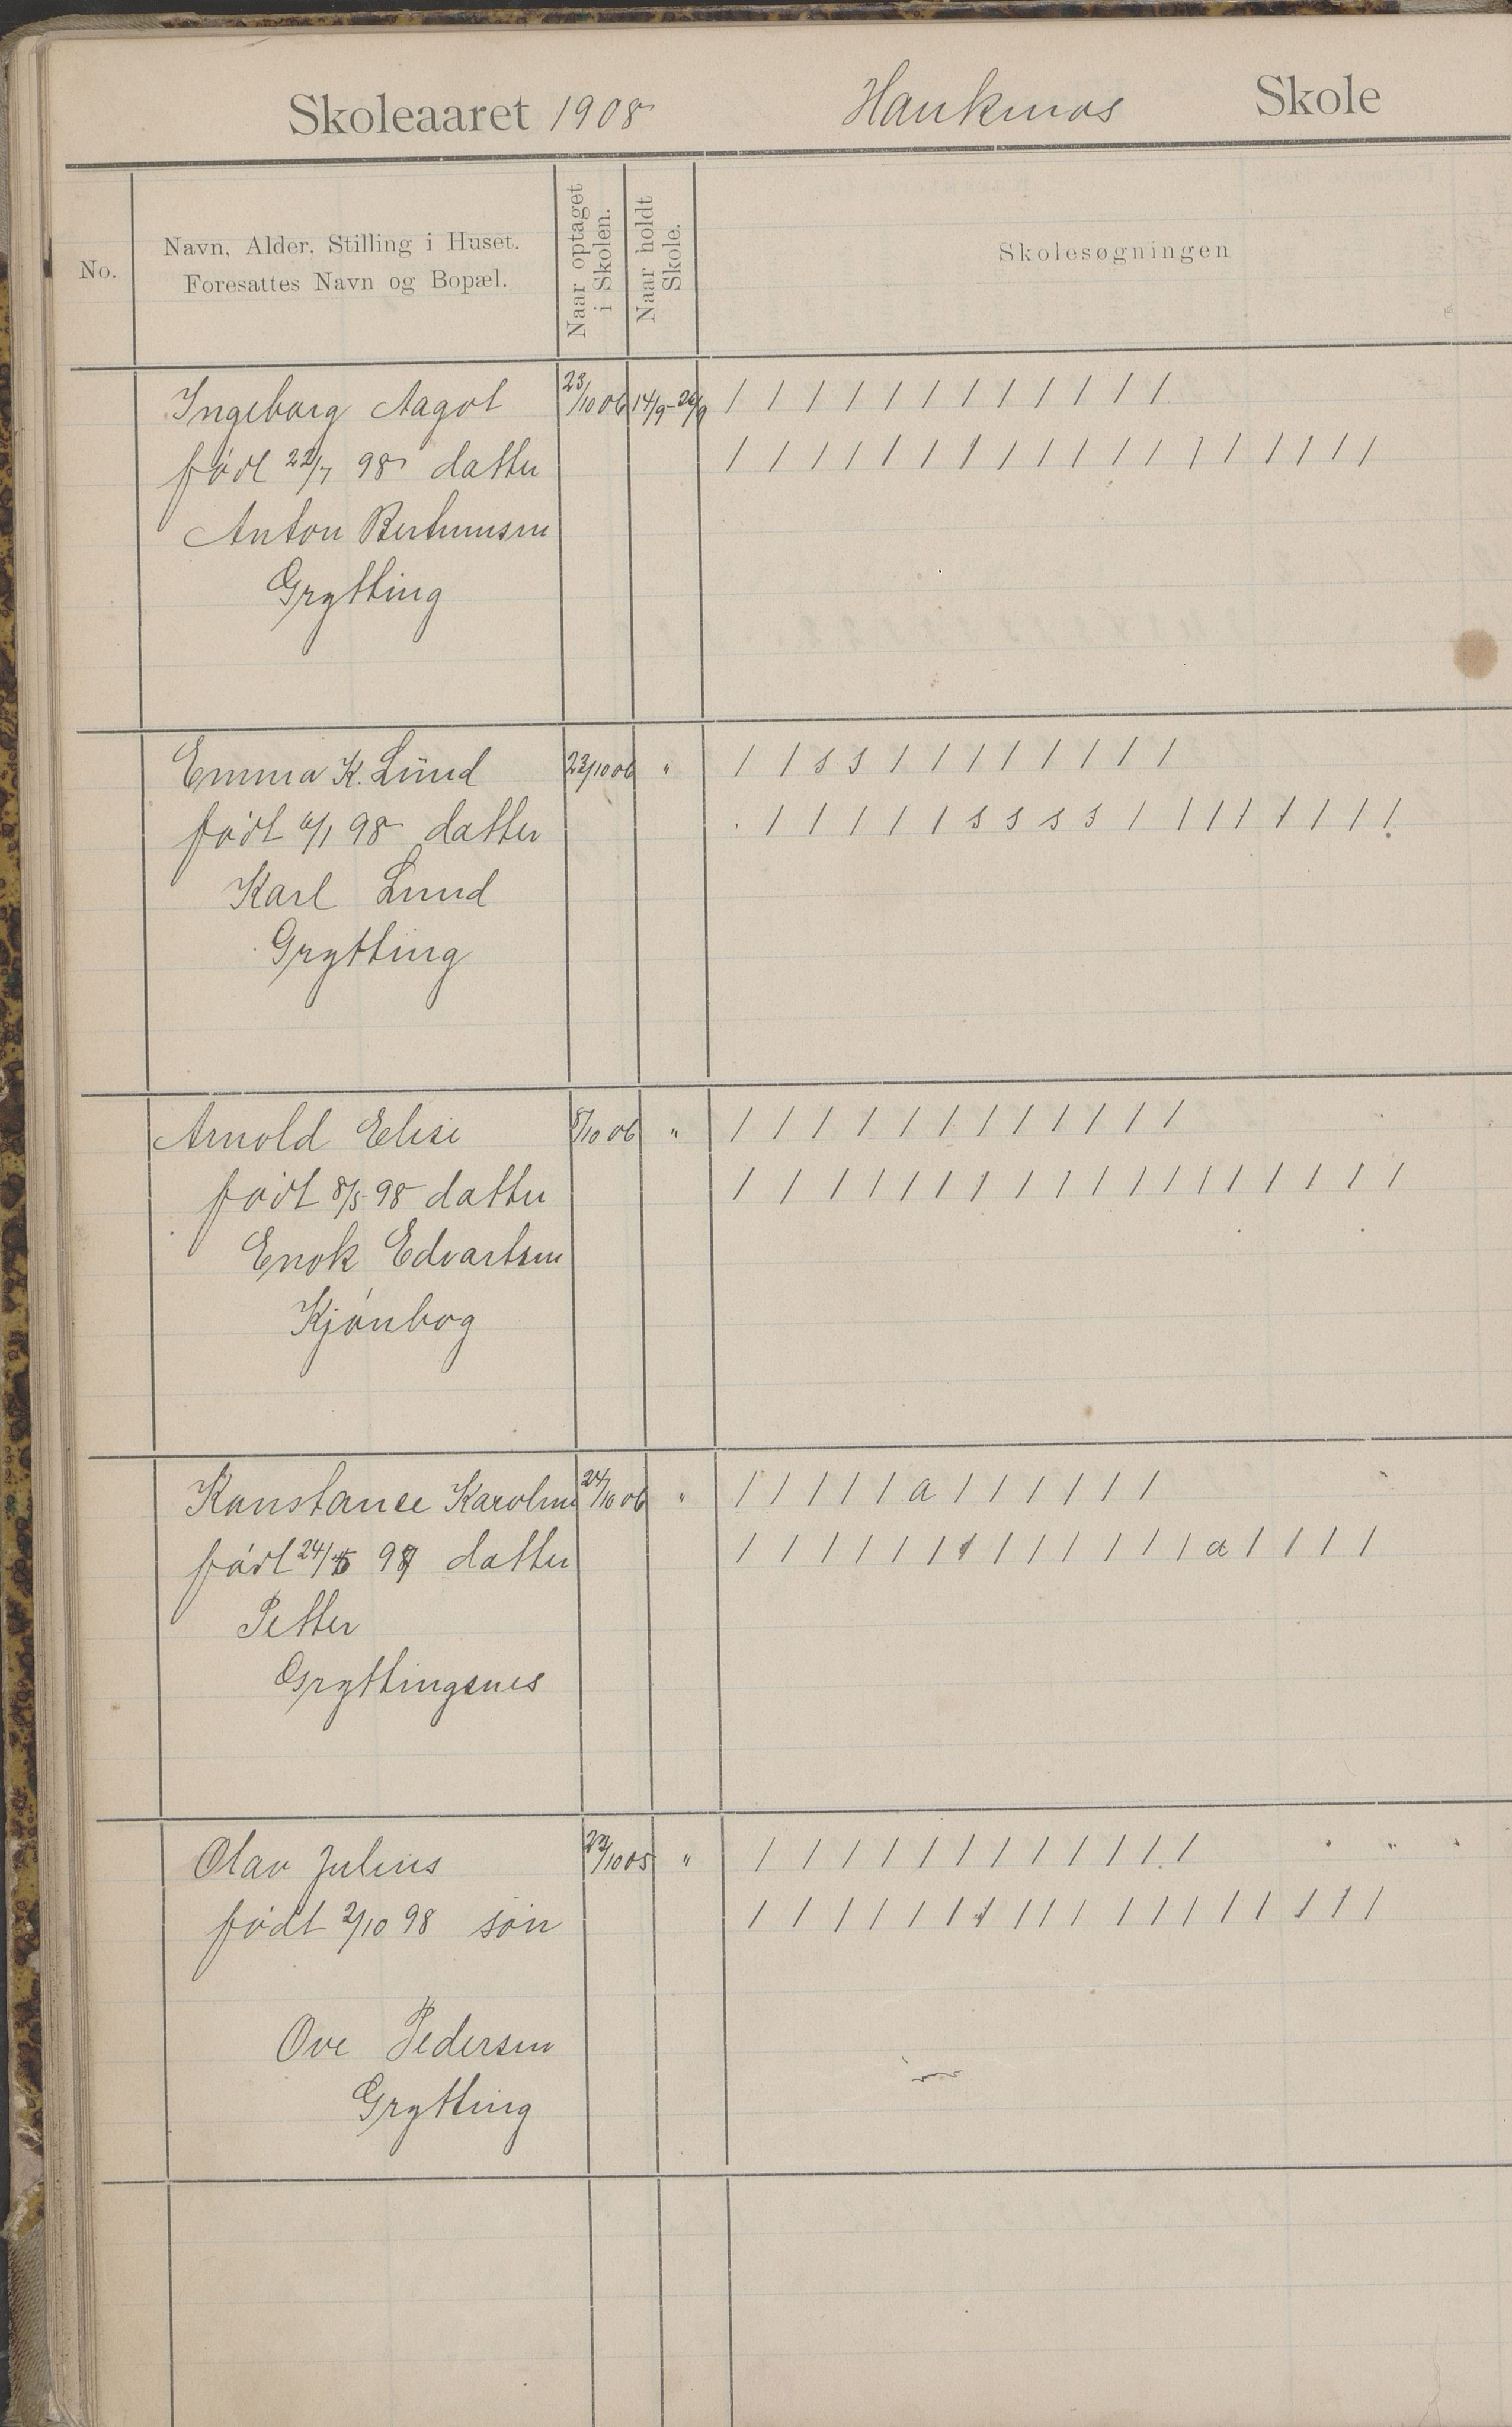 Skoleaaret 1908 Haukmos Skole
No.
Navn, Alder, Stilling i Huset.
Foresattes Navn og Bopæl.
Naar optaget
i Skolen.
Naar holdt
Skole.
Skolesøgningen
Ingeborg Aagot 23/10 06 14/9-26/9 / / / / / / / / / / / /
født 22/7 98 datter / / / / / / / / / / / / / / / / / /
Anton
Grytting
Emma K. Lund 23/10 06 " / / s s / / / / / / / /
født 6/1 98 datter / / / / / s s s s / / / / / / / /
Karl Lund
Grytting
Arnold Elise 8/10 06 " / / / / / / / / / / / /
født 8/5 98 datter / / / / / / / / / / / / / / / / / /
Enok Edvartsen
Kjønbog
Konstance Karoline 24/10 06 " / / / / / a / / / / / /
født 24/5 97 datter / / / / / / / / / / / / / a / / / /
Petter
Gryttingsnes
Olav Julius 23/10 05 " / / / / / / / / / / / /
født 2/10 98 søn / / / / / / / / / / / / / / / / / /
Ove Pedersen
Grytting